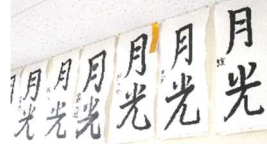 月光
月光
月光
月光
月光
月光
月